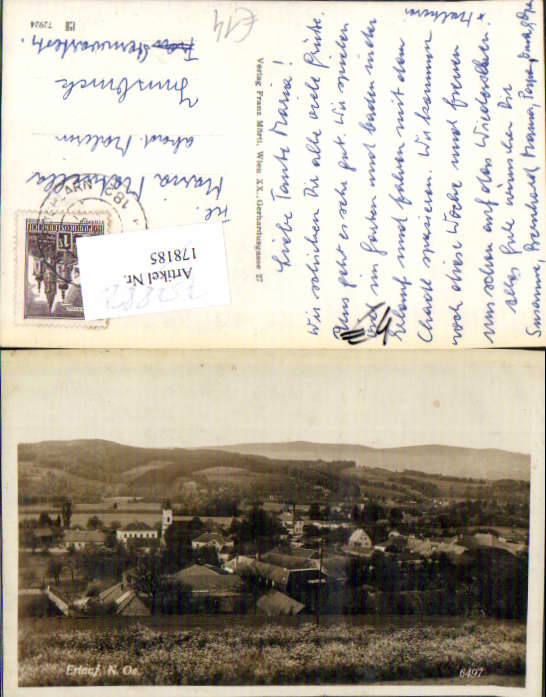 Liebe Tante Maria!
Wir schicken Dir alle viele Grüße.
Uns geht es sehr gut. Wir spielen
viel im Garten und baden in der
Erlauf und fahren mit dem
spazieren. Wir kommen
noch diese Woche und freuen
uns schon auf das Wiedersehen.
Alles Gute wünschen Dir
Susanne, Mama, Papa,
Verlag Franz Mörtl, Wien XX., Gerhardusgasse 27
Frl.
Maria
akad. Malerin
Innsbruck
Sternwartestr.
72924
€14
Artikel Nr.
178185
Erlauf, N. Oe.
6497